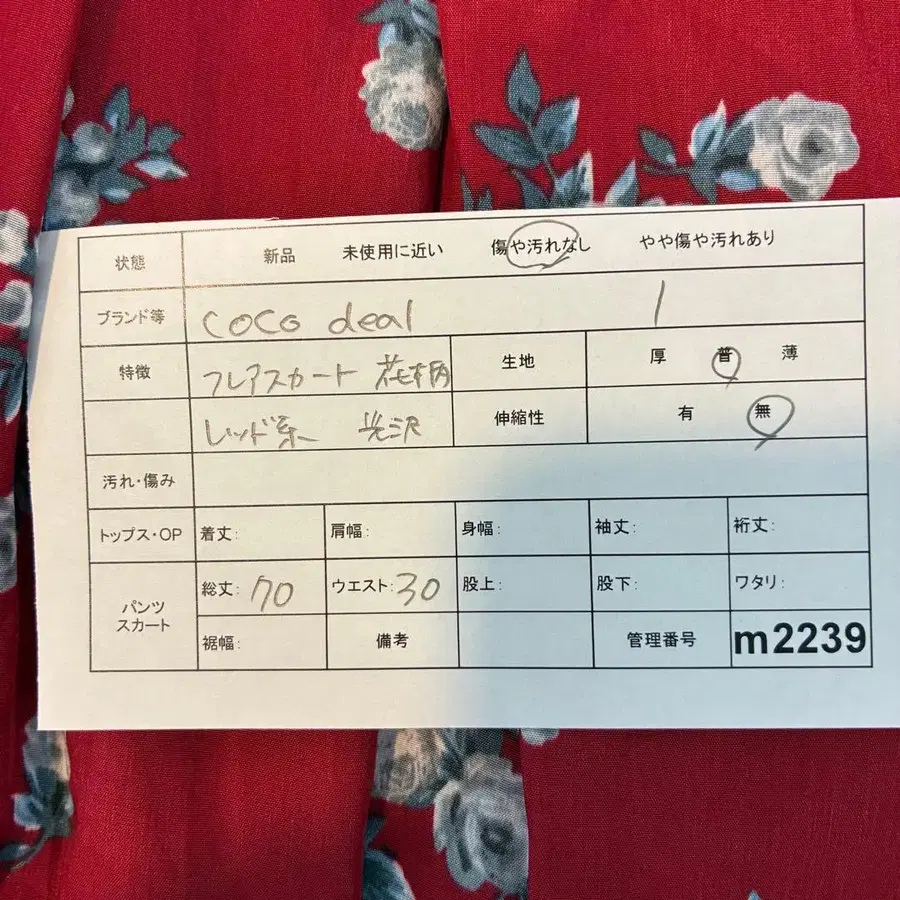 状態 新品 未使用に近い 傷や汚れなし やや傷や汚れあり
ブランド等 coco deal 1
特徴 フレアスカート 花柄 生地 厚 普 薄
レッド系 光沢 伸縮性 有 無
汚れ・傷み
トップス・OP 着丈: 肩幅: 身幅: 袖丈: 裄丈:
パンツ スカート 総丈: 70 ウエスト: 30 股上: 股下: ワタリ:
裾幅: 備考 管理番号 m2239